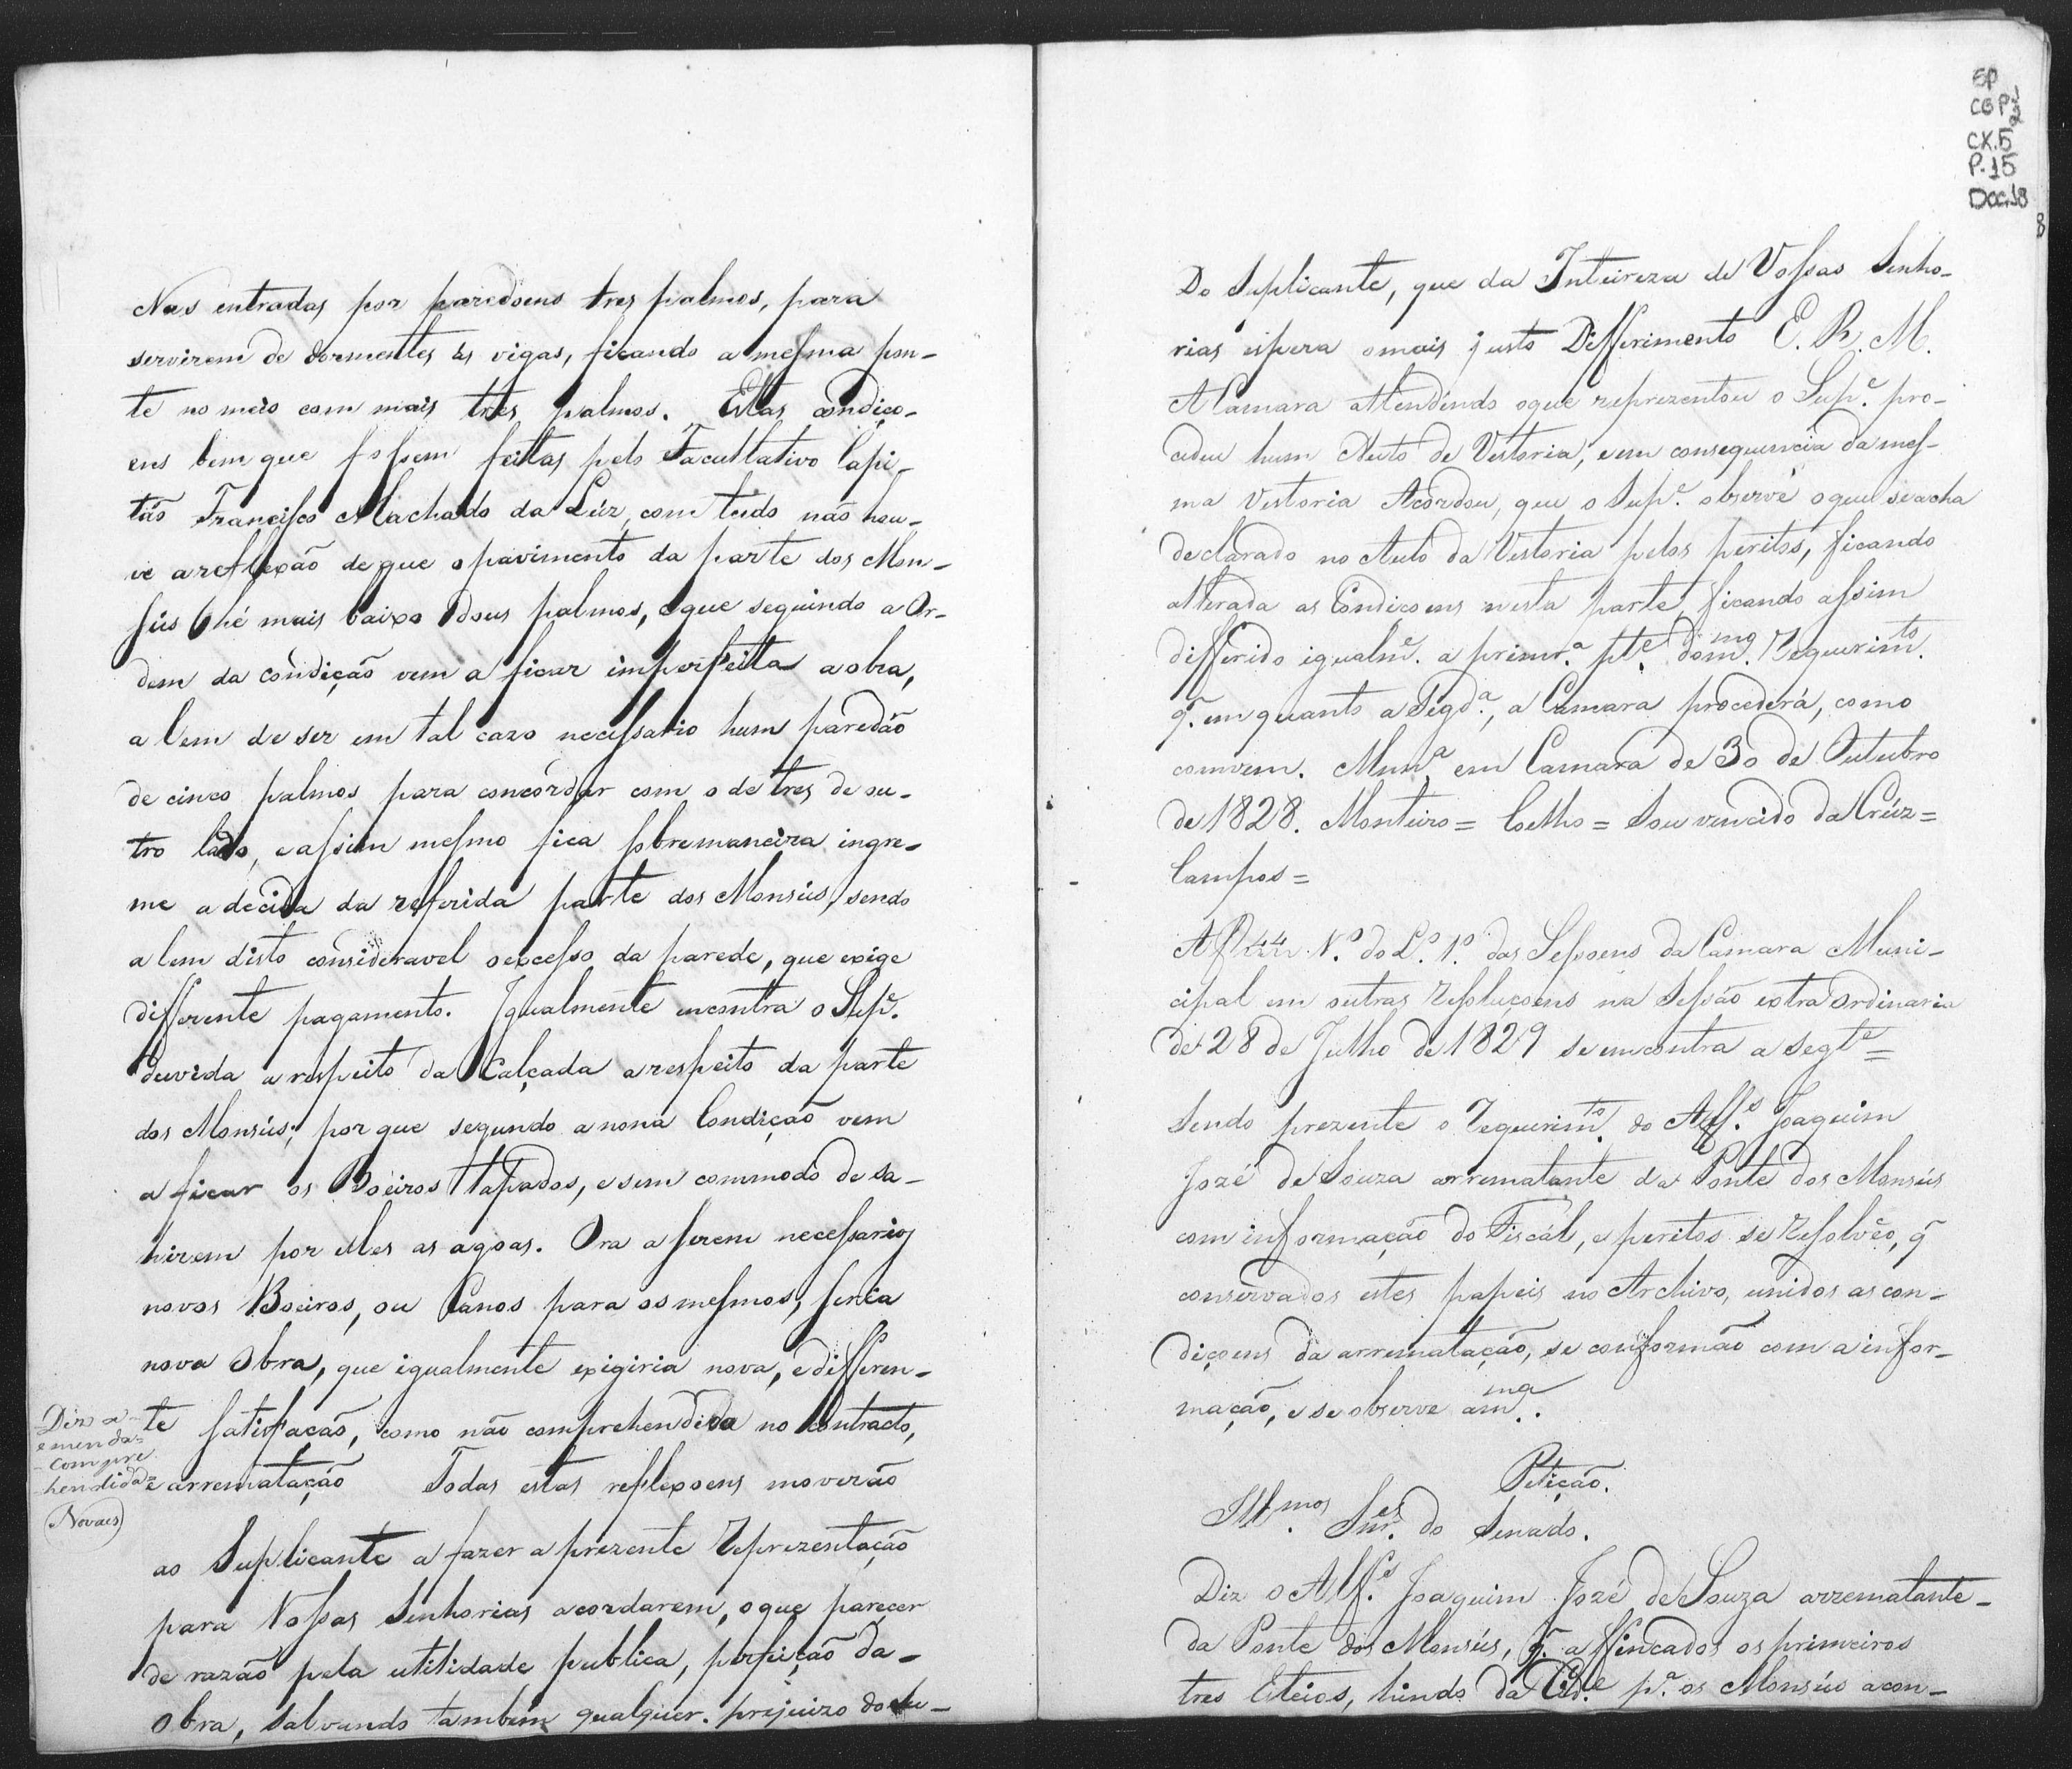 Nas entradas por paredoens tres palmos, para
servirem de dormentes ás vigas, ficando a mesma pon-
te no meio com mais tres palmos. Estas condiço-
ens bem que fossem feitas pelo Facultativo Capi-
tão Francisco Machado da Lúz, com tudo não hou-
ve a reflexão de que o pavimento da parte dos Mon-
sús hé mais baixo dous palmos, e que seguindo a Or-
dem da condição vem a ficar imperfeita a obra,
alem de ser em tal cazo necessario hum paredão
de cinco palmos para concórdar com o de tres de ou-
tro lado, e assim mesmo fica sobremaneira ingre-
me a decida da referida parte dos Monsús, sendo
alem disto consideravel o excesso da parede, que exige
differente pagamento. Igualmente encontra o Sup.e
duvida a respeito da Calçada a respeito da parte
dos Monsús; por que segundo a nona Condição vem
a ficar os Boeiros tapados, e sem commodo de sa-
hirem por elles as agoas. Ora a serem necessarios
novos Boeiros, ou Canos para os mesmos, seria
nova Obra, que igualmente exigiria nova, e differen-
te satisfacão, como não comprehendida no Contracto,
e arrematação Todas estas reflexoens moverão
ao Suplicante a fazer a prezente Reprezentação
para Vossas Senhorias acordarem, o que parecer
de razão pela utilidade publica, perfeição da
obra, salvando tambem qualquer prejuizo do Su-
Diz a
emenda=
-compre
hendida=
Novaes
SP
CGP
CX.5
P.15
Doc.18
8
Do Suplicante, que da Inteireza de Vossas Senho-
rias espera o mais justo Differimento E. R. M.
A Camara attendendo o que reprezentou o Sup.e pro-
cedeu hum Auto de Vestoria, e em consequencia da mes-
ma Vestoria Acordou, que o Sup.e observe o que se acha
declarado no Auto da Vestoria pelos peritos, ficando
alterada as Condicoens nesta parte, ficando assim
differido igualm.e a primr.a pt.e do m.mo Requerim.to
q. em quanto a Segd.a, a Camara procederá, como
comvem. Mun.a em Camara de 30 de Outubro
de 1828. Monteiro = Coelho = Sou vencido da Crúz =
Campos =
A f 44 N.o do L.o 1.o das Sessoens da Camara Muni-
cipal em outras Resoluçoens na Sessão extraordinaria
de 28 de Julho de 1829 se encontra a segt.e =
Sendo prezente o Requerim.to do Alf.s Joaquim
Jozé de Souza arrematante da Ponte dos Monsús
com informação do Fiscál, e peritos se Resolvêo, q
conservados estes papeis no Archivo, unidos as con-
diçoens da arrematação, se conformão com a infor-
mação, e se observe a m.ma.
Petição.
Ill.mos Snr.es do Senado.
Diz o Alf.s Joaquim Jozé de Souza arrematante
da Ponte dos Monsús, q. affincados os primeiros
tres Esteios, hindo da Cid.e p.a os Monsús acon-